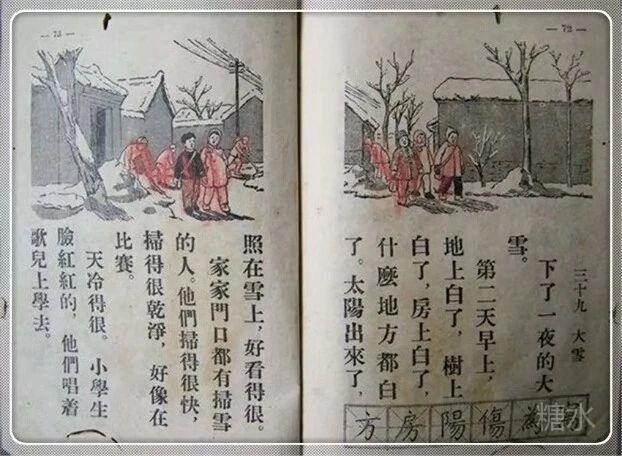 — 72 —
三十九 大雪
下了一夜的大
雪。
第二天早上，
地上白了，樹上
白了，房上白了，
什麼地方都白
了。太陽出來了，
傷陽房方
— 73 —
照在雪上，好看得很。
家家門口都有掃雪
的人。他們掃得很快，
掃得很乾淨，好像在
比賽。
天冷得很。小學生
臉紅紅的，他們唱着
歌兒上學去。
糖水